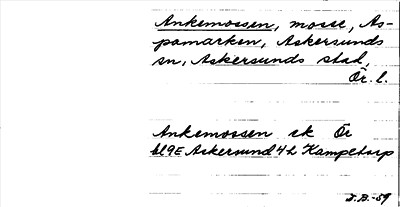 Ankemossen, mosse, As-
pamarken, Askersunds
sn, Askersunds stad,
Ör. l.
Ankemossen ek Ör
bl 9E Askersund 4 h Kampetorp
J.B.-59